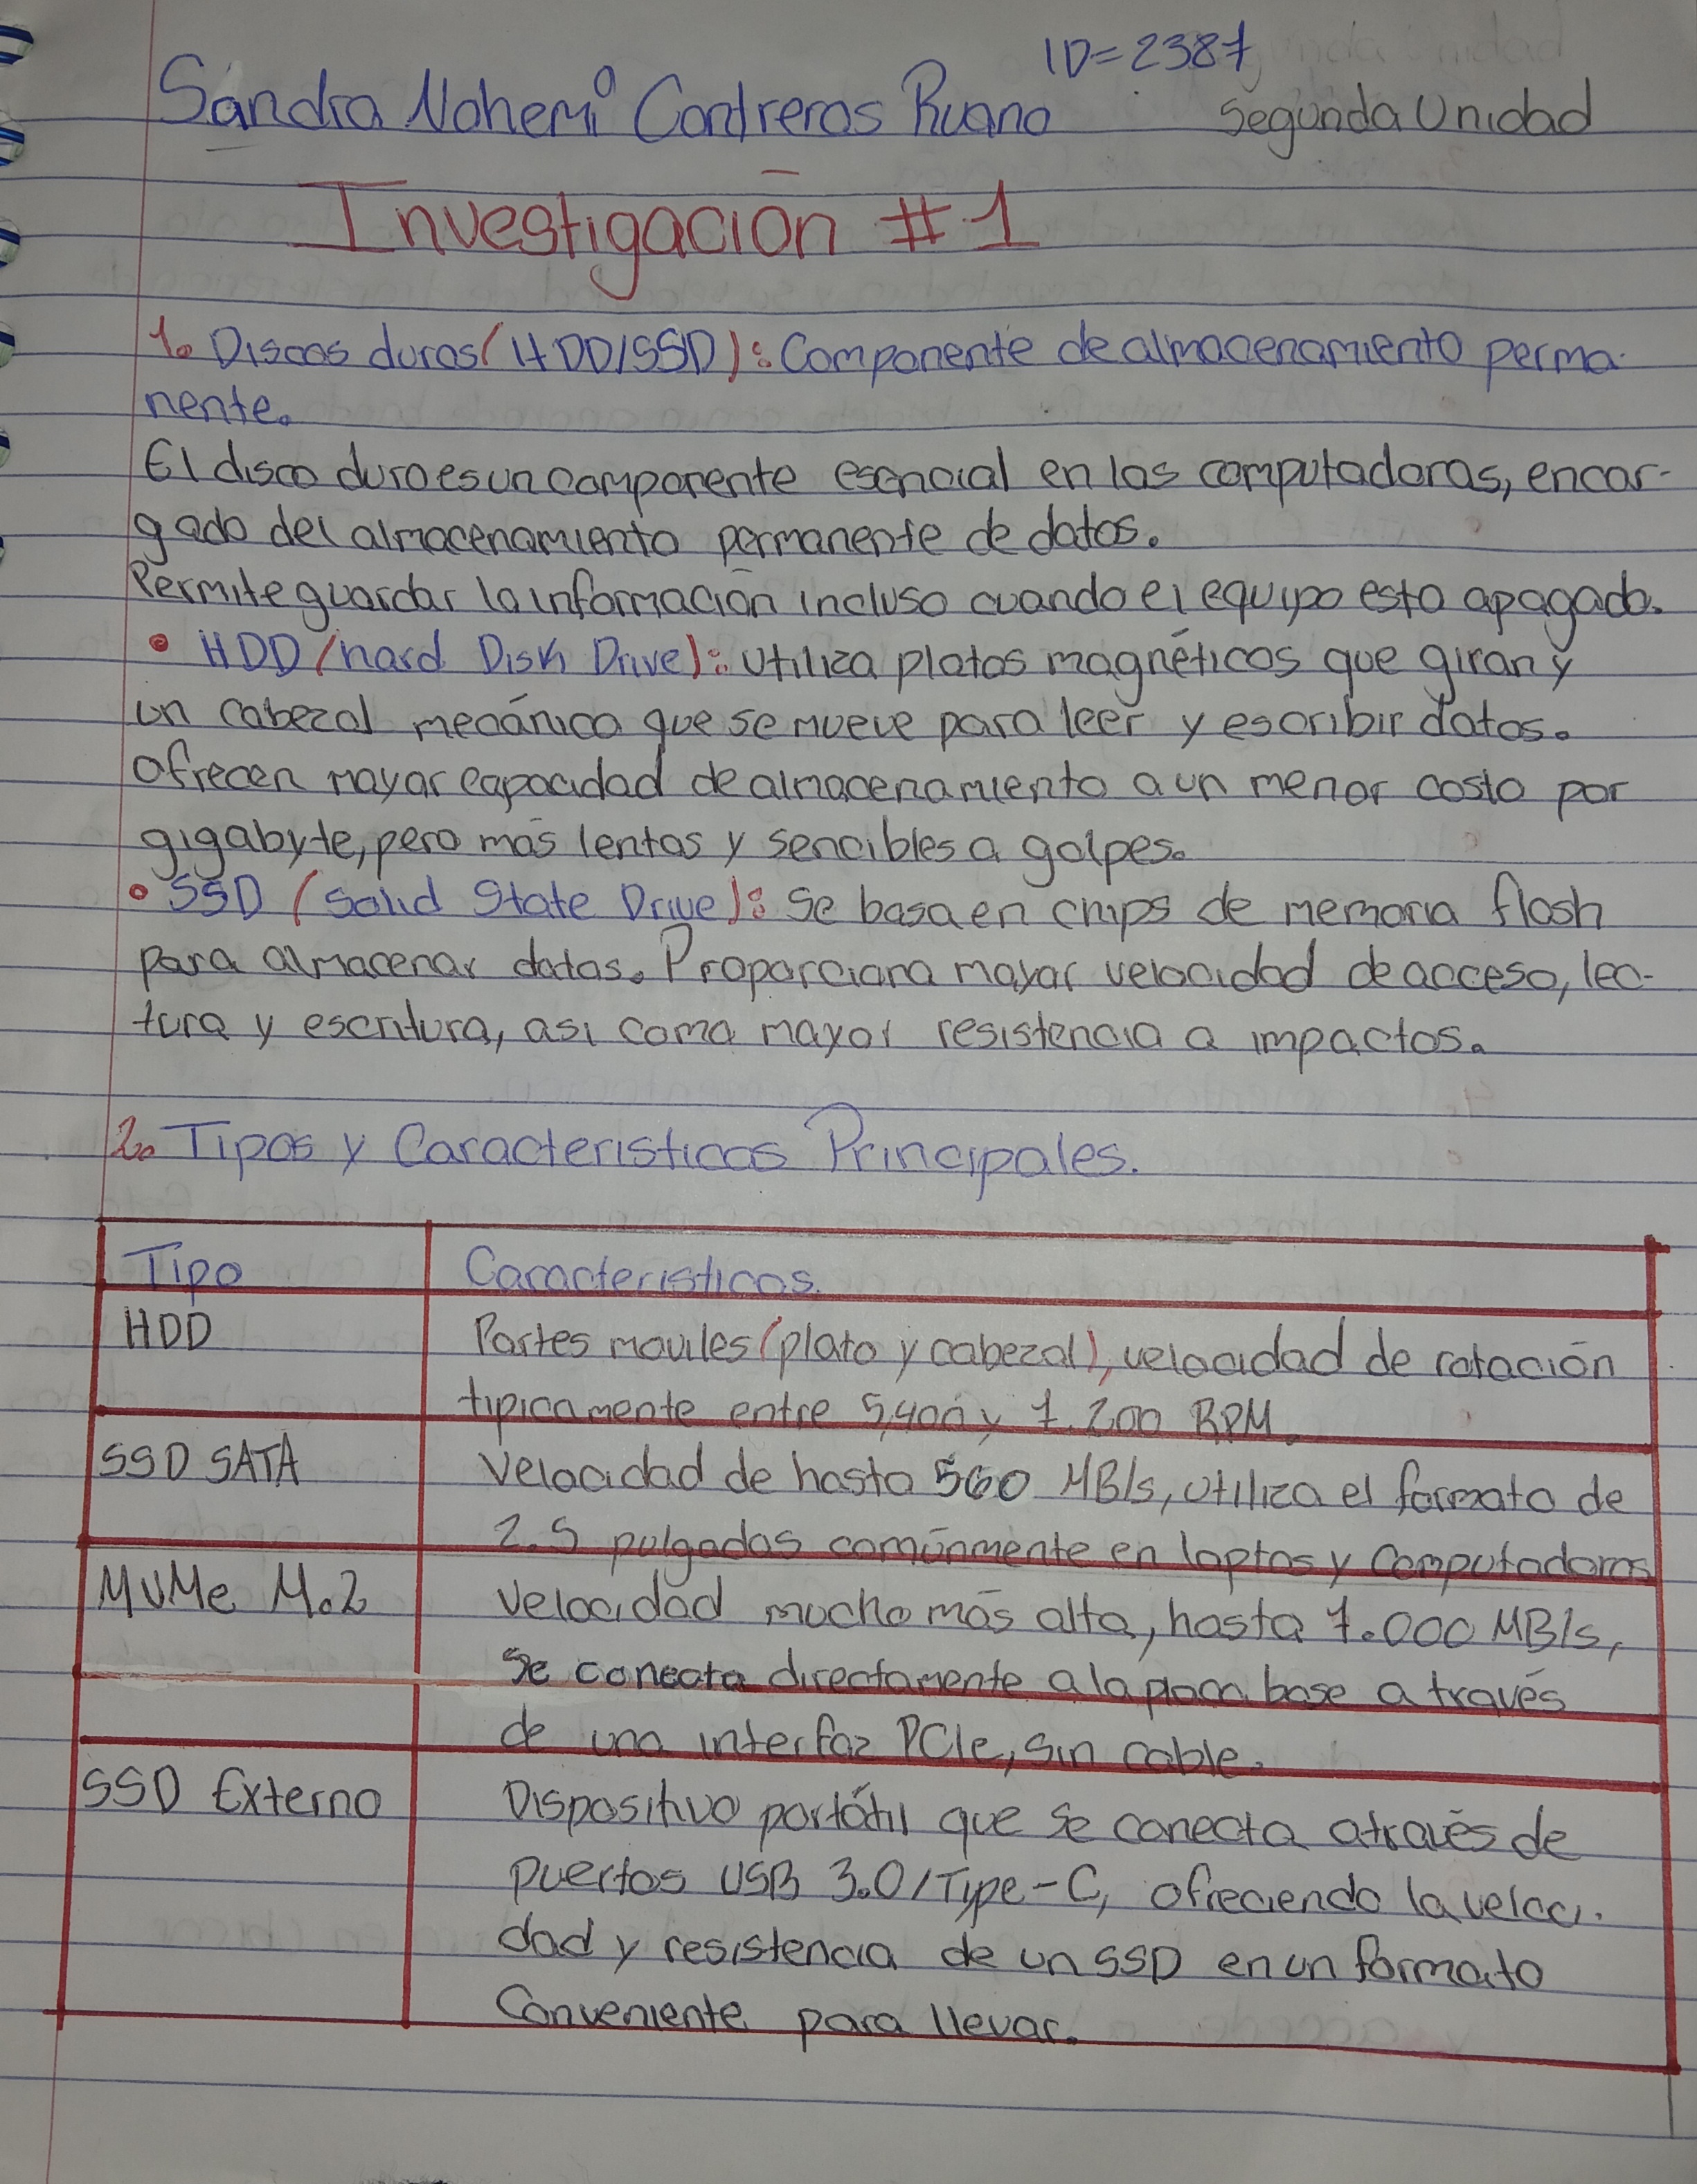 ID=2387
Sandra Nohemí Contreras Ruano
Segunda Unidad
Investigación #1
1. Discos duros (HDD/SSD): Componente de almacenamiento perma-
nente.
El disco duro es un componente esencial en las computadoras, encar-
gado del almacenamiento permanente de datos.
Permite guardar la información incluso cuando el equipo esta apagado.
• HDD (hard Disk Drive): utiliza platos magnéticos que giran y
un cabezal mecánico que se mueve para leer y escribir datos.
ofrecen mayor capacidad de almacenamiento a un menor costo por
gigabyte, pero más lentos y sencibles a golpes.
• SSD (Solid State Drive): Se basa en chips de memoria flash
para almacenar datos. Proporciona mayor velocidad de acceso, lec-
tura y escritura, asi como mayor resistencia a impactos.
2. Tipos y Caracteristicas Principales.
Tipo Caracteristicas.
HDD Partes moviles (plato y cabezal), velocidad de rotación
tipicamente entre 5,400 y 7.200 RPM.
SSD SATA Velocidad de hasta 560 MB/s, utiliza el formato de
2.5 pulgadas comúnmente en laptos y computadoras
MVMe M.2 Velocidad mucho más alta, hasta 7.000 MB/s,
Se conecta directamente a la placa base a través
de una interfaz PCIe, sin cable.
SSD Externo Dispositivo portátil que se conecta a través de
puertos USB 3.0/Type-C, ofreciendo la veloci-
dad y resistencia de un SSD en un formato
Conveniente para llevar.